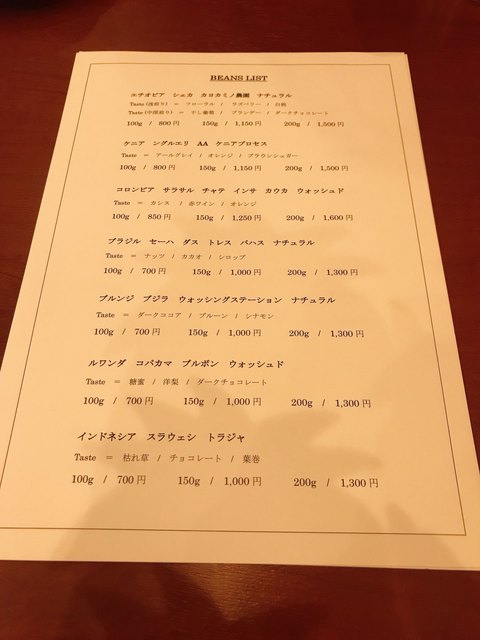 BEANS LIST
エチオピア シェカ カヨカミノ農園 ナチュラル
Taste (浅煎り) ＝ フローラル / ラズベリー / 白桃
Taste (中深煎り) ＝ 干し葡萄 / ブランデー / ダークチョコレート
100g / 800円 150g / 1,150円 200g / 1,500円
ケニア ングルエリ AA ケニアプロセス
Taste ＝ アールグレイ / オレンジ / ブラウンシュガー
100g / 800円 150g / 1,150円 200g / 1,500円
コロンビア サラサル チャテ インサ カウカ ウォッシュド
Taste ＝ カシス / 赤ワイン / オレンジ
100g / 850円 150g / 1,250円 200g / 1,600円
ブラジル セーハ ダス トレス バハス ナチュラル
Taste ＝ ナッツ / カカオ / シロップ
100g / 700円 150g / 1,000円 200g / 1,300円
ブルンジ ブジラ ウォッシングステーション ナチュラル
Taste ＝ ダークココア / プルーン / シナモン
100g / 700円 150g / 1,000円 200g / 1,300円
ルワンダ コパカマ ブルボン ウォッシュド
Taste ＝ 糖蜜 / 洋梨 / ダークチョコレート
100g / 700円 150g / 1,000円 200g / 1,300円
インドネシア スラウェシ トラジャ
Taste ＝ 枯れ草 / チョコレート / 葉巻
100g / 700円 150g / 1,000円 200g / 1,300円